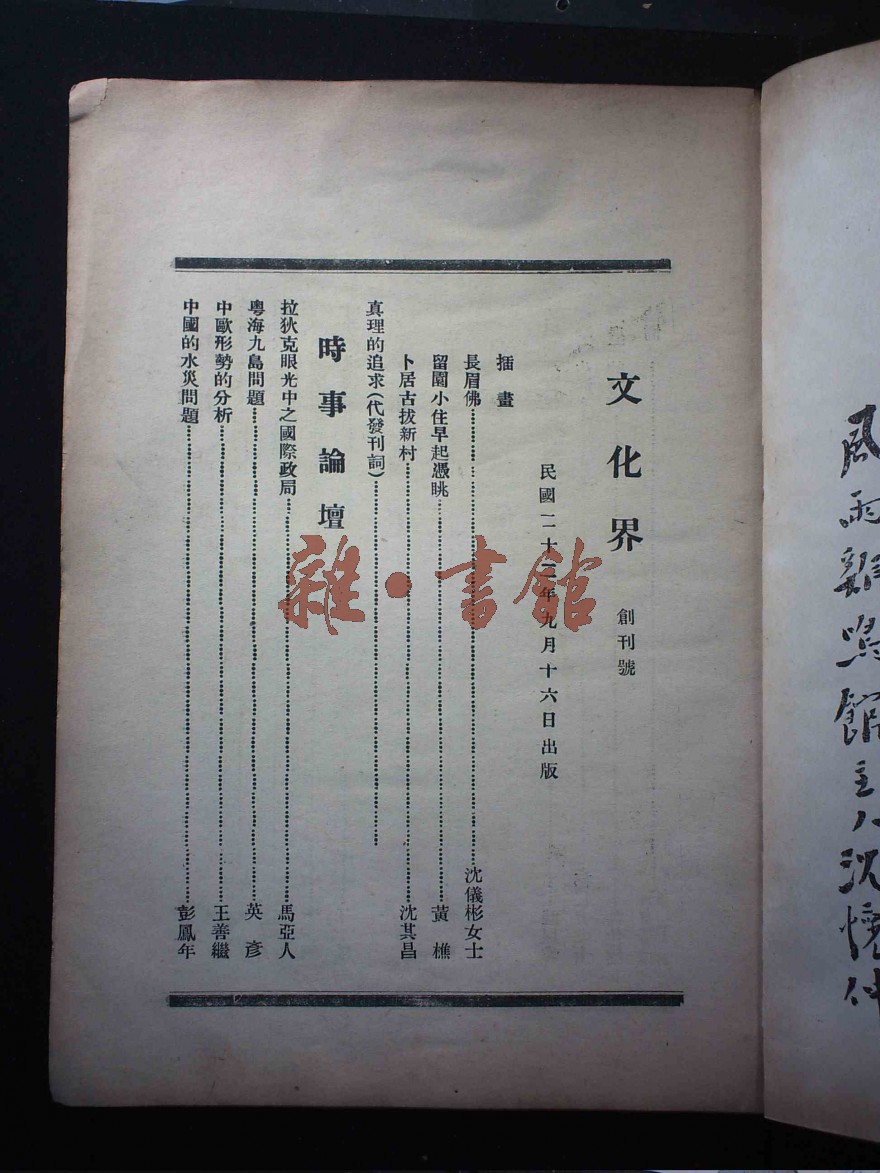 風雨雞鳴館主人沈懷仲
文化界 創刊號
民國二十二年九月十六日出版
插畫
長眉佛 沈儀彬女士
留園小住早起憑眺 黃樵
卜居古拔新村 沈其昌
真理的追求(代發刊詞)
時事論壇
拉狄克眼光中之國際政局 馬亞人
粵海九島問題 英彥
中歐形勢的分析 王善繼
中國的水災問題 彭鳳年
雜·書館